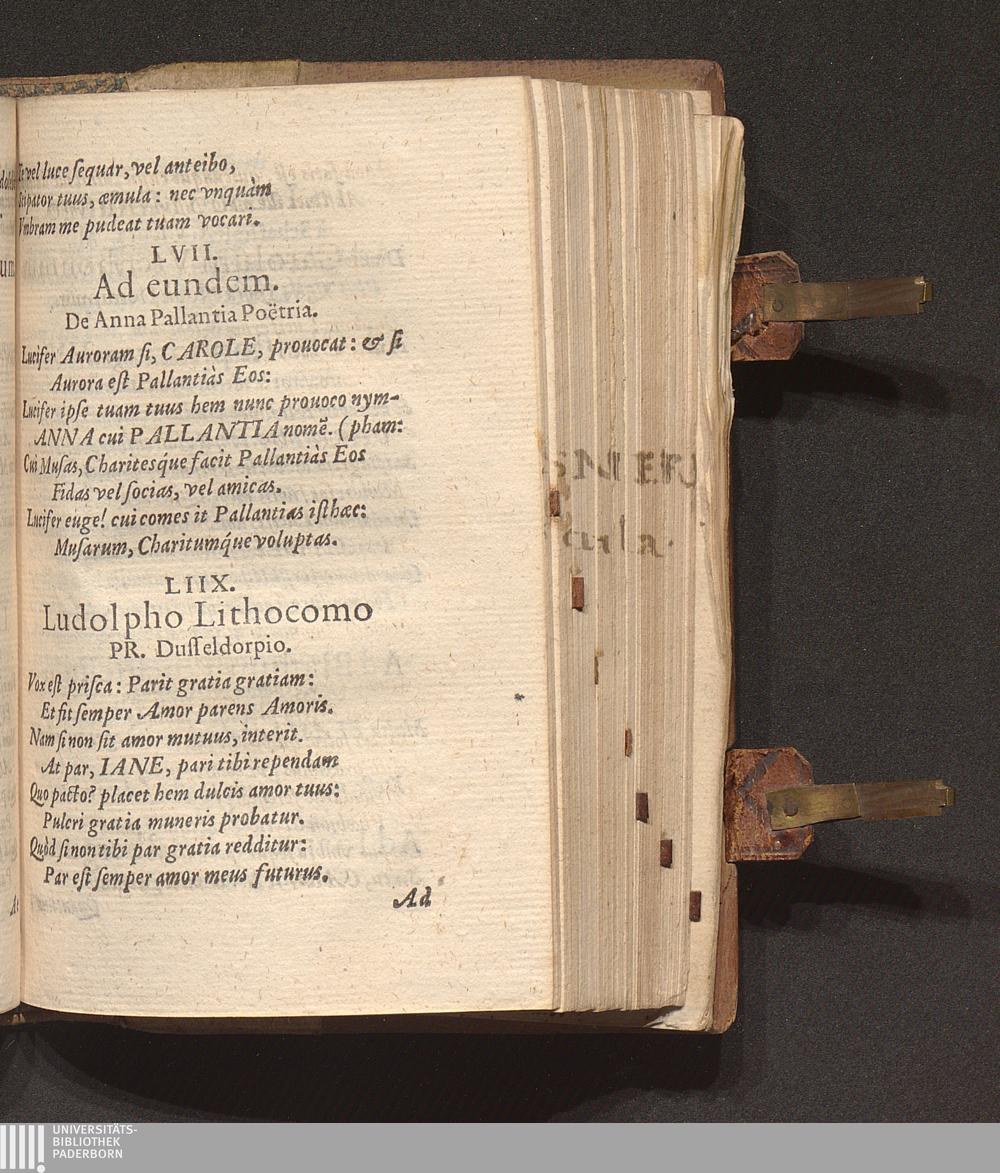 Te vel luce ſequar, vel anteibo,
Stipator tuus, æmula: nec vnquàm
Vmbram me pudeat tuam vocari.
LVII.
Ad eundem.
De Anna Pallantia Poëtria.
Lucifer Auroram ſi, CAROLE, prouocat: & ſi
Aurora eſt Pallantiàs Eos:
Lucifer ipſe tuam tuus hem nunc prouoco nym-
ANNA cui PALLANTIA nomẽ. (pham:
Cui Muſas, Charitesq́ue facit Pallantiàs Eos
Fidas vel ſocias, vel amicas.
Lucifer euge! cui comes it Pallantias iſthæc:
Muſarum, Charitumq́ue voluptas.
LIIX.
Ludolpho Lithocomo
PR. Duſſeldorpio.
Vox eſt priſca: Parit gratia gratiam:
Et fit ſemper Amor parens Amoris.
Nam ſi non ſit amor mutuus, interit.
At par, IANE, pari tibi rependam
Quo pacto? placet hem dulcis amor tuus:
Pulcri gratia muneris probatur.
Quòd ſi non tibi par gratia redditur:
Par eſt ſemper amor meus futurus.
Ad
UNIVERSITÄTS-
BIBLIOTHEK
PADERBORN